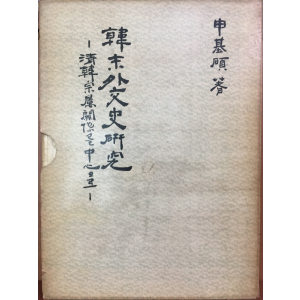 申基碩 著
韓末外交史研究
－淸韓宗屬關係를 中心으로－